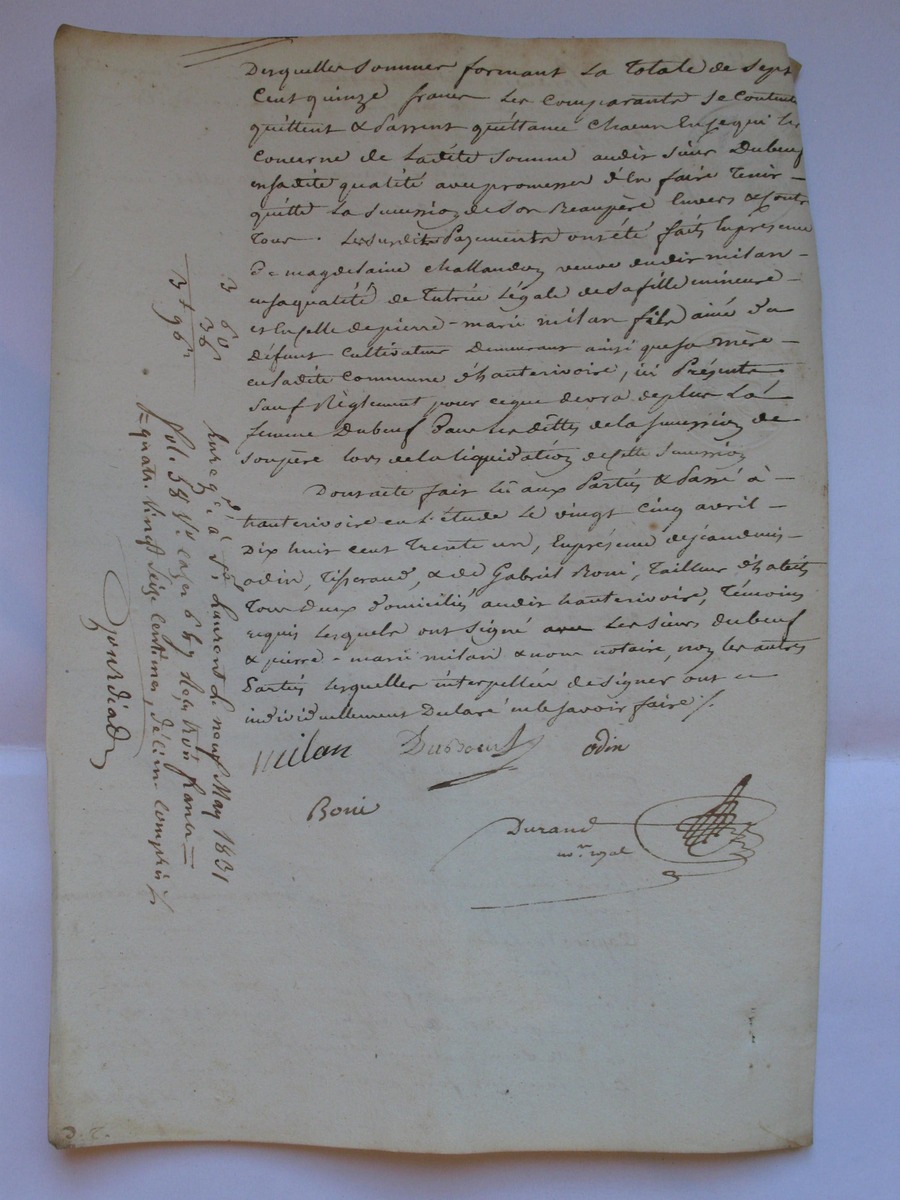 Desquelles sommes formant la totale de sept
Cent quinze francs les comparants se contente
quittent & Passent quittance chacun en ce qui les
Concerne de Ladite somme audit sieur Dubeuf
en sa dite qualité avec promesse d'en faire Tenir
quitte La succession de son Beaupère Envers & contre
Tous. Les susdits Payements ont été faits En présence
De magdelaine challandon veuve dudit milan
en sa qualité de Tutrice Légale de sa fille mineure
et En celle de pierre-marie milan fils ainé du
défunt cultivateur Demeurant ainsi que sa mère
en Ladite Commune d'hauterivoire, ici Présents
Sauf Règlement pour ce que devra de plus La
femme Dubeuf Dans les dettes de la succession de
son père lors de la liquidation de cette succession
Dont acte fait lu aux Parties & Passé à
hauterivoire en L'étude Le vingt cinq avril
Dix huit cent Trente un, En présence de jean denis
odin, Tisserand, & de Gabriel Boni, Tailleur d'habits
Tous deux domiciliés audit hauterivoire, Témoins
requis Lesquels ont signé avec Les sieurs dubeuf
& pierre-marie milan & nous notaire, non les autres
Parties Lesquelles interpellées de signer ont
individuellement Declaré ne le savoir faire /.
milan Duboeuf odin
Boni
Durand
no.re royal
3 60
36
3f 96c
Enregé. à St. Laurent le neuf May 1831
fol. 58 Vo. cases 6 & 7 Reçu trois francs
quatre vingt seize centimes, décime compris
3. E.